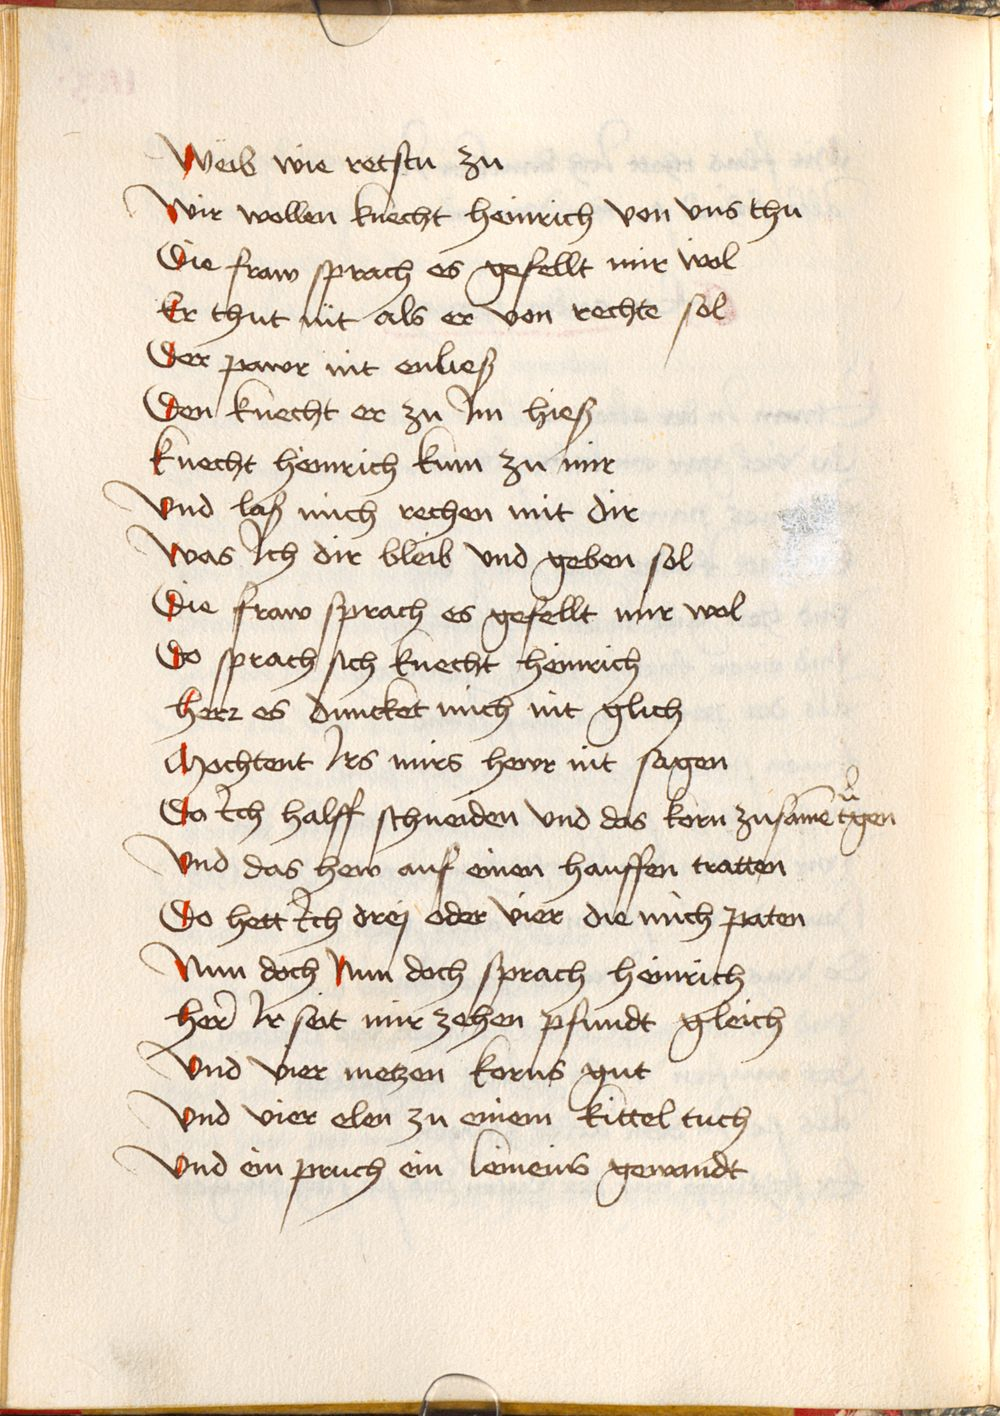 Weib wie retstu zu
Wir wollen knecht heinrich von vns thu
Die fraw sprach es gefellt mir wol
Er thut nit als er von rechte sol
Der pawr nit enließ
Den knecht er zu Im hieß
Knecht heinrich kum zu mir
Vnd laß mich rechen mit dir
Was Ich dir bleib vnd geben sol
Die fraw sprach es gefellt mir wol
Do sprach sich knecht heinrich
herr es duncket mich nit glich
Mochtent Irs mirs hewr nit sagen
Da Ich halff schneiden vnd das korn zusamē tragen
Vnd das hew auf einen hauffen tratten
Do hett Ich drej oder vier die mich paten
Nun doch Nun doch sprach heinrich
her Ir seit mir zehen pfundt gleich
Vnd vier metzen korns gut
Vnd vier elen zu einem kittel tuch
Vnd ein pruch ein leineins gewandt